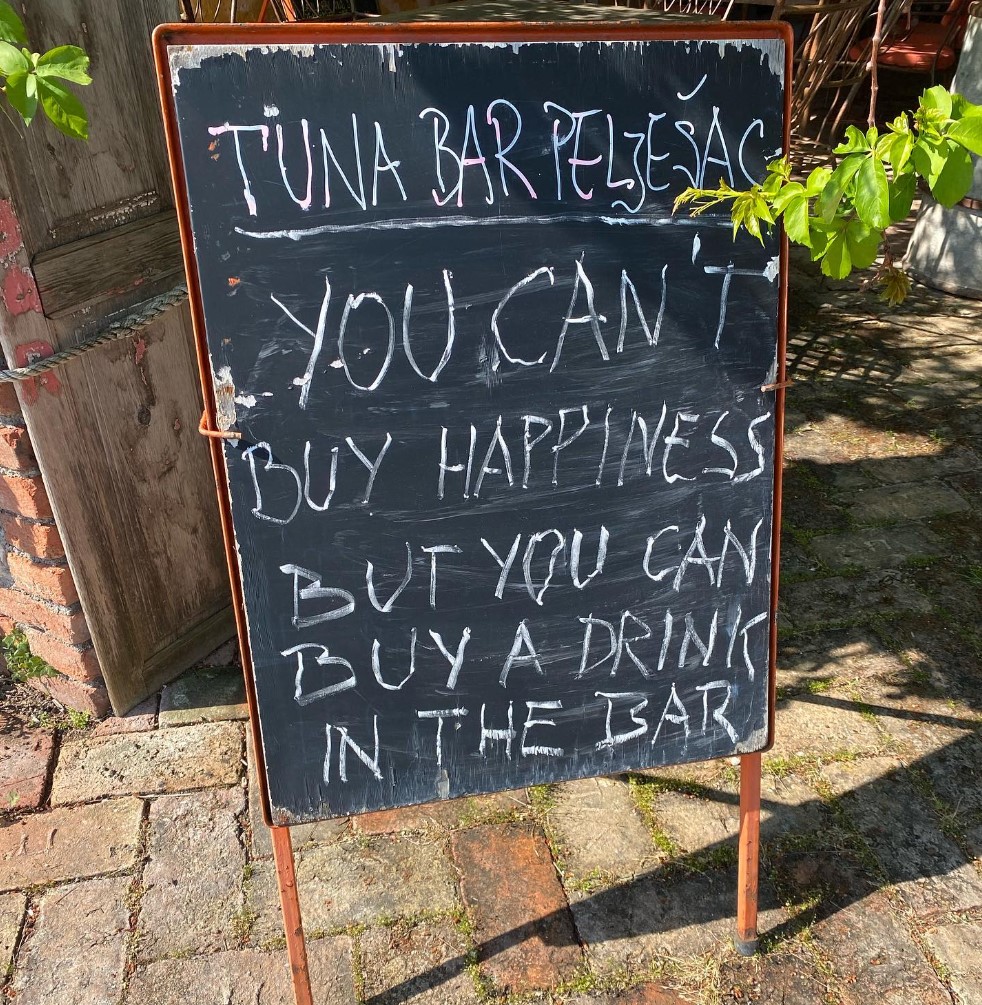 TUNA BAR PELJEŠAC
YOU CAN'T
BUY HAPPINESS
BUT YOU CAN
BUY A DRINK
IN THE BAR